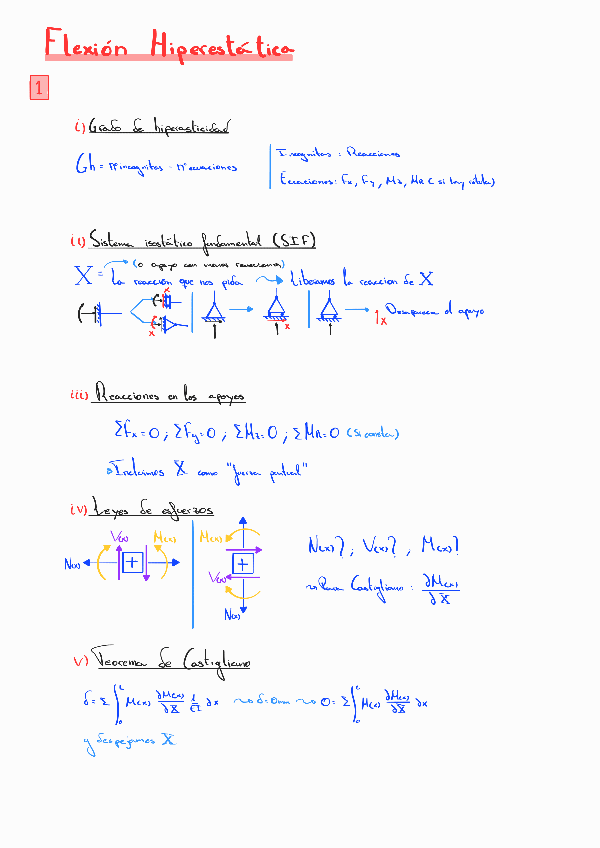 Flexión Hiperestática
1
i) Grado de hiperasticidad
Gh = nº incognitas - nº ecuaciones
Incognitas : Reacciones
Ecuaciones: Fx, Fy, Mz, MR (si hay rótula)
ii) Sistema isostático fundamental (SIF)
(o apoyo con menos reacciones)
X = La reacción que nos pida ⟿ Liberamos la reacción de X
x
x
x
x
Desaparece el apoyo
iii) Reacciones en los apoyos
ΣFx=0 ; ΣFy=0 ; ΣMz=0 ; ΣMR=0 (si consta)
Incluimos X como "fuerza puntual"
iv) Leyes de esfuerzos
V(x) M(x)
N(x) +
M(x)
+
V(x)
N(x)
N(x)? ; V(x)? , M(x)?
Para Castigliano : ∂M(x)/∂X
v) Teorema de Castigliano
δ = Σ ∫₀ᴸ M(x) ∂M(x)/∂X 1/EI dx ⟿ δ=0mm ⟿ 0 = Σ ∫₀ᴸ M(x) ∂M(x)/∂X dx
y despejamos X